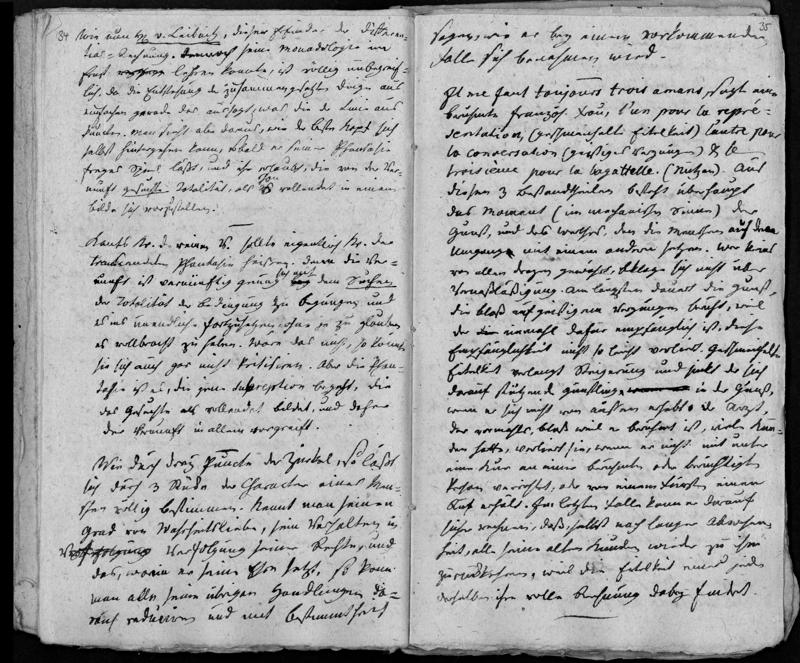 34
Wie nun H. v. Leibnitz, dieser Erfinder der Differen-
tial-Rechnung, dennoch seine Monadologie im
Ernst lehren konnte, ist völlig unbegreif-
lich, da die Entstehung der zusammengesetzten Dinge aus
einfachen gerade das aussagt, was die der Linie aus
Puncten. Man sieht also daraus, wie der beste Kopf sich
selbst hintergehen kann, sobald er seiner Phantasie
freyes Spiel läßt, und ihr erlaubt, die von der Ver-
nunft gesuchte Totalität, als vollendet in einem
Bilde sich vorzustellen.
Kants Kr. d. reinen V. sollte eigentlich Kr. der
transcendenten Phantasie heissen. Denn die Ver-
nunft ist vernünftig genug sich mit dem Suchen
der Totalität der Bedingung zu begnügen und
es ins unendliche fortzusetzen, ohne je zu glauben
es vollbracht zu haben. Wäre das nicht, so könnte
sie sich auch gar nicht kritisiren. Aber die Phan-
tasie ist es, die jene Subreption begeht, die
das Gesuchte als vollendet bildet, und daher
der Vernunft in allem vorgreift.
Wie durch drey Puncte der Zirkel, so läßt
sich durch 3 Stücke der Character eines Men-
schen völlig bestimmen. Kennt man seinen
Grad von Wahrheitsliebe, sein Verhalten in
Verfolgung seiner Rechte, und
das, worin er seine Ehre setzt, so kann
man alle seine übrigen Handlungen da-
rauf reduciren und mit Bestimmtheit
35
sagen, wie er bey einem vorkommenden
Falle sich benehmen wird.
Il me faut toujours trois amans, sagt eine
berühmte französ. Frau, l'un pour la repré-
sentation, (geschmeichelte Eitelkeit) l'autre pour
la conversation (geistiges Vergnügen) & le
troisieme pour la bagattelle. (Nutzen). Aus
diesen 3 Bestandtheilen besteht überhaupt
das Moment (im mechanischen Sinne) der
Gunst, und des Werthes, den die Menschen auf den
Umgang mit einem andern setzen. Wer keins
von allen dreyen gewährt, beklage sich nicht über
Vernachläßigung. Am längsten dauert die Gunst,
die bloß auf geistigem Vergnügen beruht, weil
der einmahl dafür empfänglich ist, diese
Empfänglichkeit nicht so leicht verliert. Geschmeichelte
Eitelkeit verlangt Steigerung und sinkt der sich
darauf stützende Günstling in der Gunst,
wenn er sich nicht von außen erhebt. Der Arzt,
der vormahls, bloß weil er berühmt ist, viele Kun-
den hatte, verliert sie, wenn er nicht mit unter
eine Kur an einer berühmten oder berüchtigten
Person verrichtet, oder von einem Fürsten einen
Ruf erhält. Im letzten Falle kann er darauf
sicher rechnen, daß, selbst nach langer Abwesen-
heit, alle seine alten Kunden wieder zu ihm
zurückkehren, weil die Eitelkeit eines jeden
derselben ihre volle Rechnung dabey findet.